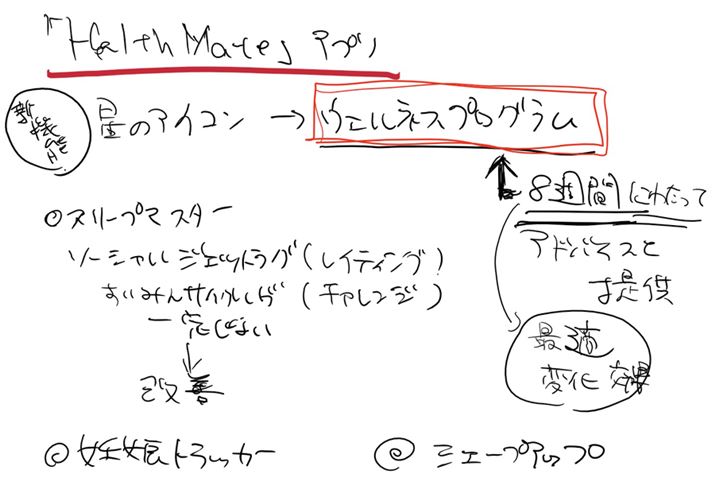 「HealthMates」アプリ
新機能
星のアイコン → ウェルネスプログラム
8週間にわたって
アドバイスを
提供
最適
変化 効果
◎スリープマスター
ソーシャルジェットラグ(レイティング)
すいみんサイクルが(チャレンジ)
一定しない
↓
改善
◎妊娠トラッカー
◎シェープアッププロ